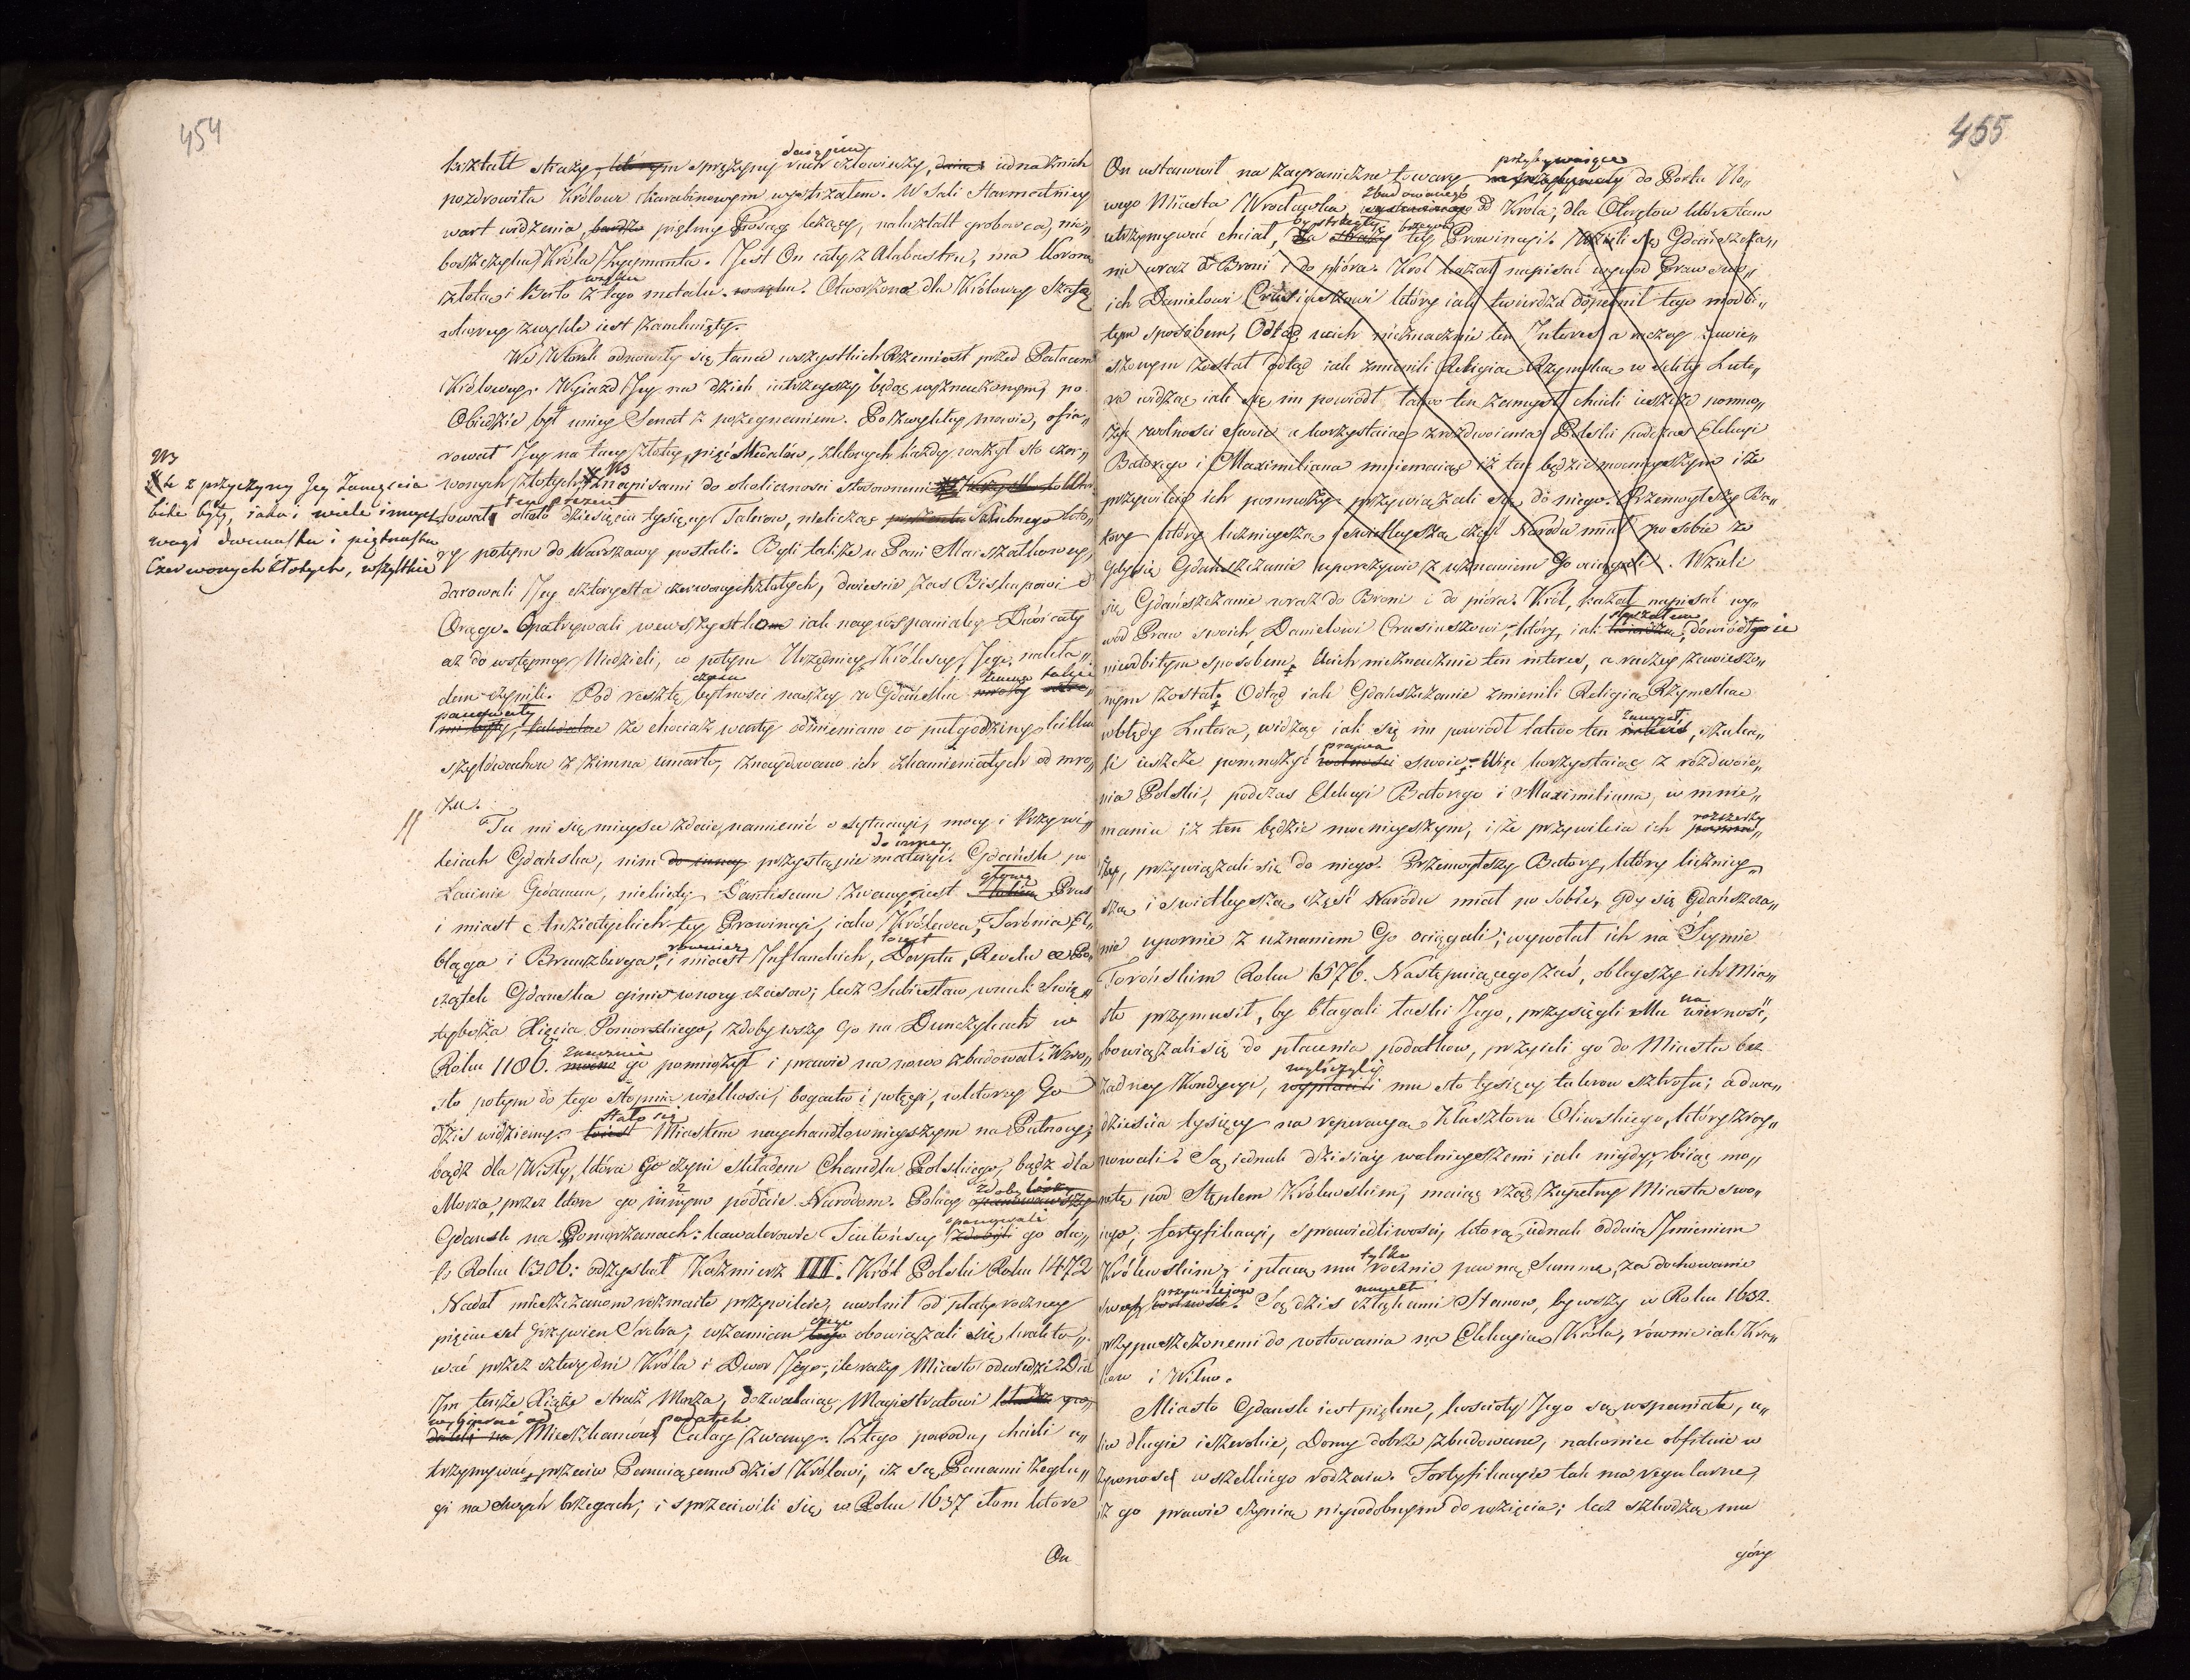 454
kształt straży, którym sprężyny dających ruch człowieczy, daiąc iednakich
pozdrowiła Królowę karabinowym wystrzałem. W Sali Starmetniey
wart widzenia, bardzo piękny Posąg leżący, nakształt grobowca, nie„
boszczyka Króla Zygmunta. Jest On cały z Alabastru, ma Koronę
złotą i Berło z tego metalu w ręku. Otworzono dla Królowey Szafę
w którey zwykle iest zamknięty.
We Wtorek odnowiły się tance wszystkich Rzemiosł przed Pałacem
Królowey. Wyiazd Jey na dzień iutrzeyszy będąc wyznaczonym, po
Obiedzie był u niey Senat z pożegnaniem. Po zwykłey mowie, ofia„
rował Jey na tacy złotey, pięć Medalów, z których każdy ważył sto czer„
wonych złotych, z napisami do okoliczności stosownemi
NB
te z przyczyny Jey Zamęścia
bite były, iako i wiele innych
wagi dwunastu i piętnastu
Czerwonych Złotych, wszystkie
ten prezent
około dziesięciu tysięcy Talerow, nielicząc Srebrnego
potym do Warszawy posłali. Byli także u Pani Marszałkowey,
darowali Jey czterysta czerwonych złotych, dwieście zas Biskupowi d'
Orange. Opatrywali we wszystko iak naywspanialey Dwór cały
aż do wstępney Niedzieli, co potym Urzędnicy Królewscy, Jego nakła„
dem czynili. Pod resztę czasu bytności naszey w Gdańsku
panowały, że chociaż warty odmieniano co pułgodziny, kilku
szyldwachow z zimna umarło, znaydowano ich skamieniałych od mro„
zu.
Tu mi się mieysce zdaie, namienić o sytuacyi, mocy i Przywi„
leiach Gdańska, nim do inney przystąpię materyi. Gdańsk po
Łacinie Gedanum, niekiedy Dantiscum zwany, iest głową Prus
i miast Anzeatyckich tey Prowincyi, iako Królewca, Torunia El„
bląga i Brunzberga; również i miast Inflanckich, Dorptu, Rewlu. Po„
czątek Gdańska ginie w nocy czasow; lecz Subiesław wnuk Świę„
topełka Xięcia Pomorskiego, zdobywszy Go na Dunczykach w
Roku 1186. znacznie go pomnożył i prawie na nowo zbudował. Wzro„
sło potym do tego stopnia wielkości, bogactw i potęgi, w którey Go
dzis widziemy. Stało się Miastem nayhandlownieyszym na Pułnocy,
bądź dla Wisły, która Go czyni składem Chandlu Polskiego, bądź dla
Morza, przez które go innym podaie Narodom. Polacy zdobyli
Gdańsk na Pomorzanach: kawalerowie Teutońscy opanowali go oko„
ło Roku 1306: odzyskał Kazmierz III. Król Polski Roku 1472
Nadał mieszczanom rozmaite przywileie, uwolnił od płaty roczney
pięciuset grzywien Srebra, w zamian czego obowiązali się trakto„
wać przez cztery dni Króla i Dwor Jego, ile razy Miasto odwiedzi. Dał
Im tenże Xiążę straż Morza, dozwalaiąc Magistratowi
wybierać od Mieszkańców podatek Calag zwany. Z tego powodu, chcieli u„
trzymywać przeciw Panuiącemu dziś Królowi, iż są Panami żeglu„
gi na swych brzegach; i sprzeciwili się w Roku 1637 cłom które
On
455
On ustanowił na zagraniczne towary przybywaiące do Portu No„
wego Miasta Wrocławka zbudowanego od Króla; dla Okrętów które tam
utrzymywać chciał, by strzegły brzegow tey Prowincyi. Wzieli się Gdańszcza„
nie wraz do Broni i do pióra. Król kazał napisać wywód Praw swo„
ich Danielowi Crusiuszowi który iak twierdzą dopełnił tego niezbi„
tym sposobem, Odtąd ucich nieznacznie ten Interes a raczey zawie„
szonym został odtąd iak zmienili Religią Rzymską w sekty Lute„
ra widząc iak się im powiodł łatwo ten zamysł chcieli ieszcze pomno„
żyć wolności swoie a korzystaiąc z rozdwoienia Polski podczas Elekcyi
Batorego i Maximiliana mniemaiąc iż ten będzie mocnieyszym i że
przywileie ich pomnoży przywiązali się do niego. Przemógłszy Ba„
tory który licznieyszą i świetnieyszą część Narodu miał po sobie że
gdy się Gdańszczanie uporczywie z uznaniem Go ociągali. Wzieli
się Gdańszczanie wraz do Broni i do pióra. Król, kazał napisać wy„
wód Praw swoich Danielowi Crusiuszowi, który, iak słyszałem, dowiódł ie
niezbitym sposobem. Ucich nieznacznie ten interes, a raczey zawieszo„
nym został. Odtąd iak Gdańszczanie zmienili Religią Rzymską
w błędy Lutera, widząc iak się im powiodł łatwo ten zamysł, szuka„
li ieszcze pomnożyć prawa swoie. Więc korzystaiąc z rozdwoie„
nia Polski, podczas Elekcyi Batorego i Maximiliana, w mnie„
maniu iż ten będzie mocnieyszym, i że przywileia ich rozszerzy
przywiązali się do niego. Przemógłszy Batory, który licznieg„
szą i swietleyszą część Narodu miał po sobie, gdy się Gdańszcza„
nie upornie z uznaniem Go ociągali; wywołał ich na Seymie
Toruńskim Roku 1576. Następuiącego zaś, obległszy ich Mia„
sto przymusił, by błagali łaski Jego, przysięgli Mu na wierność,
bowiązali się do płacenia podatkow, przyieli go do Miasta bez
żadney Kondycyi, wyliczyli mu sto tysięcy talerow sztrofu; a dwa„
dzieścia tysięcy na reperacyą Klasztoru Oliwskiego, który zruy„
nowali. Są iednak dzisiay wolnieyszemi iak nigdy, biią mo„
netę pod Stęplem Królewskim, maiąc rząd zupełny Miasta swo„
iego, fortyfikacyi, sprawiedliwości, którą iednak oddaią Imieniem
Królewskim, i płacą mu tylko rocznie pewną Summę, za dochowanie
swych przywilejow. Są dzis nawet członkami Stanow, bywszy w Roku 1632.
przypuszczonemi do wotowania na Elekcyią Króla, równie iak Kra„
kow i Wilno.
Miasto Gdańsk iest piękne, koscioły Jego są wspaniałe, u„
lice długie i szerokie, Domy dobrze zbudowane, nakoniec obfituie w
żywność wszelkiego rodzaiu. Fortyfikacyie tak ma regularne,
iż go prawie czynią niepodobnym do wzięcia; lecz szkodzą mu
góry